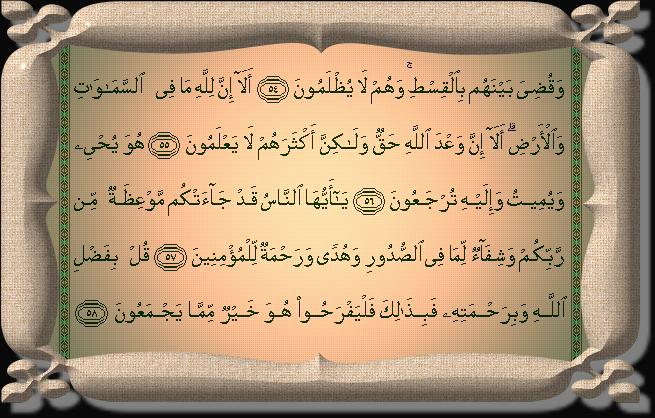 وَقُضِىَ بَيْنَهُم بِٱلْقِسْطِ ۚ وَهُمْ لَا يُظْلَمُونَ ٥٤ أَلَآ إِنَّ لِلَّهِ مَا فِى ٱلسَّمَـٰوَٰتِ
وَٱلْأَرْضِ ۗ أَلَآ إِنَّ وَعْدَ ٱللَّهِ حَقٌّ وَلَـٰكِنَّ أَكْثَرَهُمْ لَا يَعْلَمُونَ ٥٥ هُوَ يُحْىِۦ
وَيُمِيتُ وَإِلَيْهِ تُرْجَعُونَ ٥٦ يَـٰٓأَيُّهَا ٱلنَّاسُ قَدْ جَآءَتْكُم مَّوْعِظَةٌ مِّن
رَّبِّكُمْ وَشِفَآءٌ لِّمَا فِى ٱلصُّدُورِ وَهُدًى وَرَحْمَةٌ لِّلْمُؤْمِنِينَ ٥٧ قُلْ بِفَضْلِ
ٱللَّـهِ وَبِرَحْـمَتِهِۦ فَبِذَٰلِكَ فَلْيَفْرَحُـوا۟ هُـوَ خَـيْرٌ مِّمَّـا يَجْـمَعُونَ ٥٨